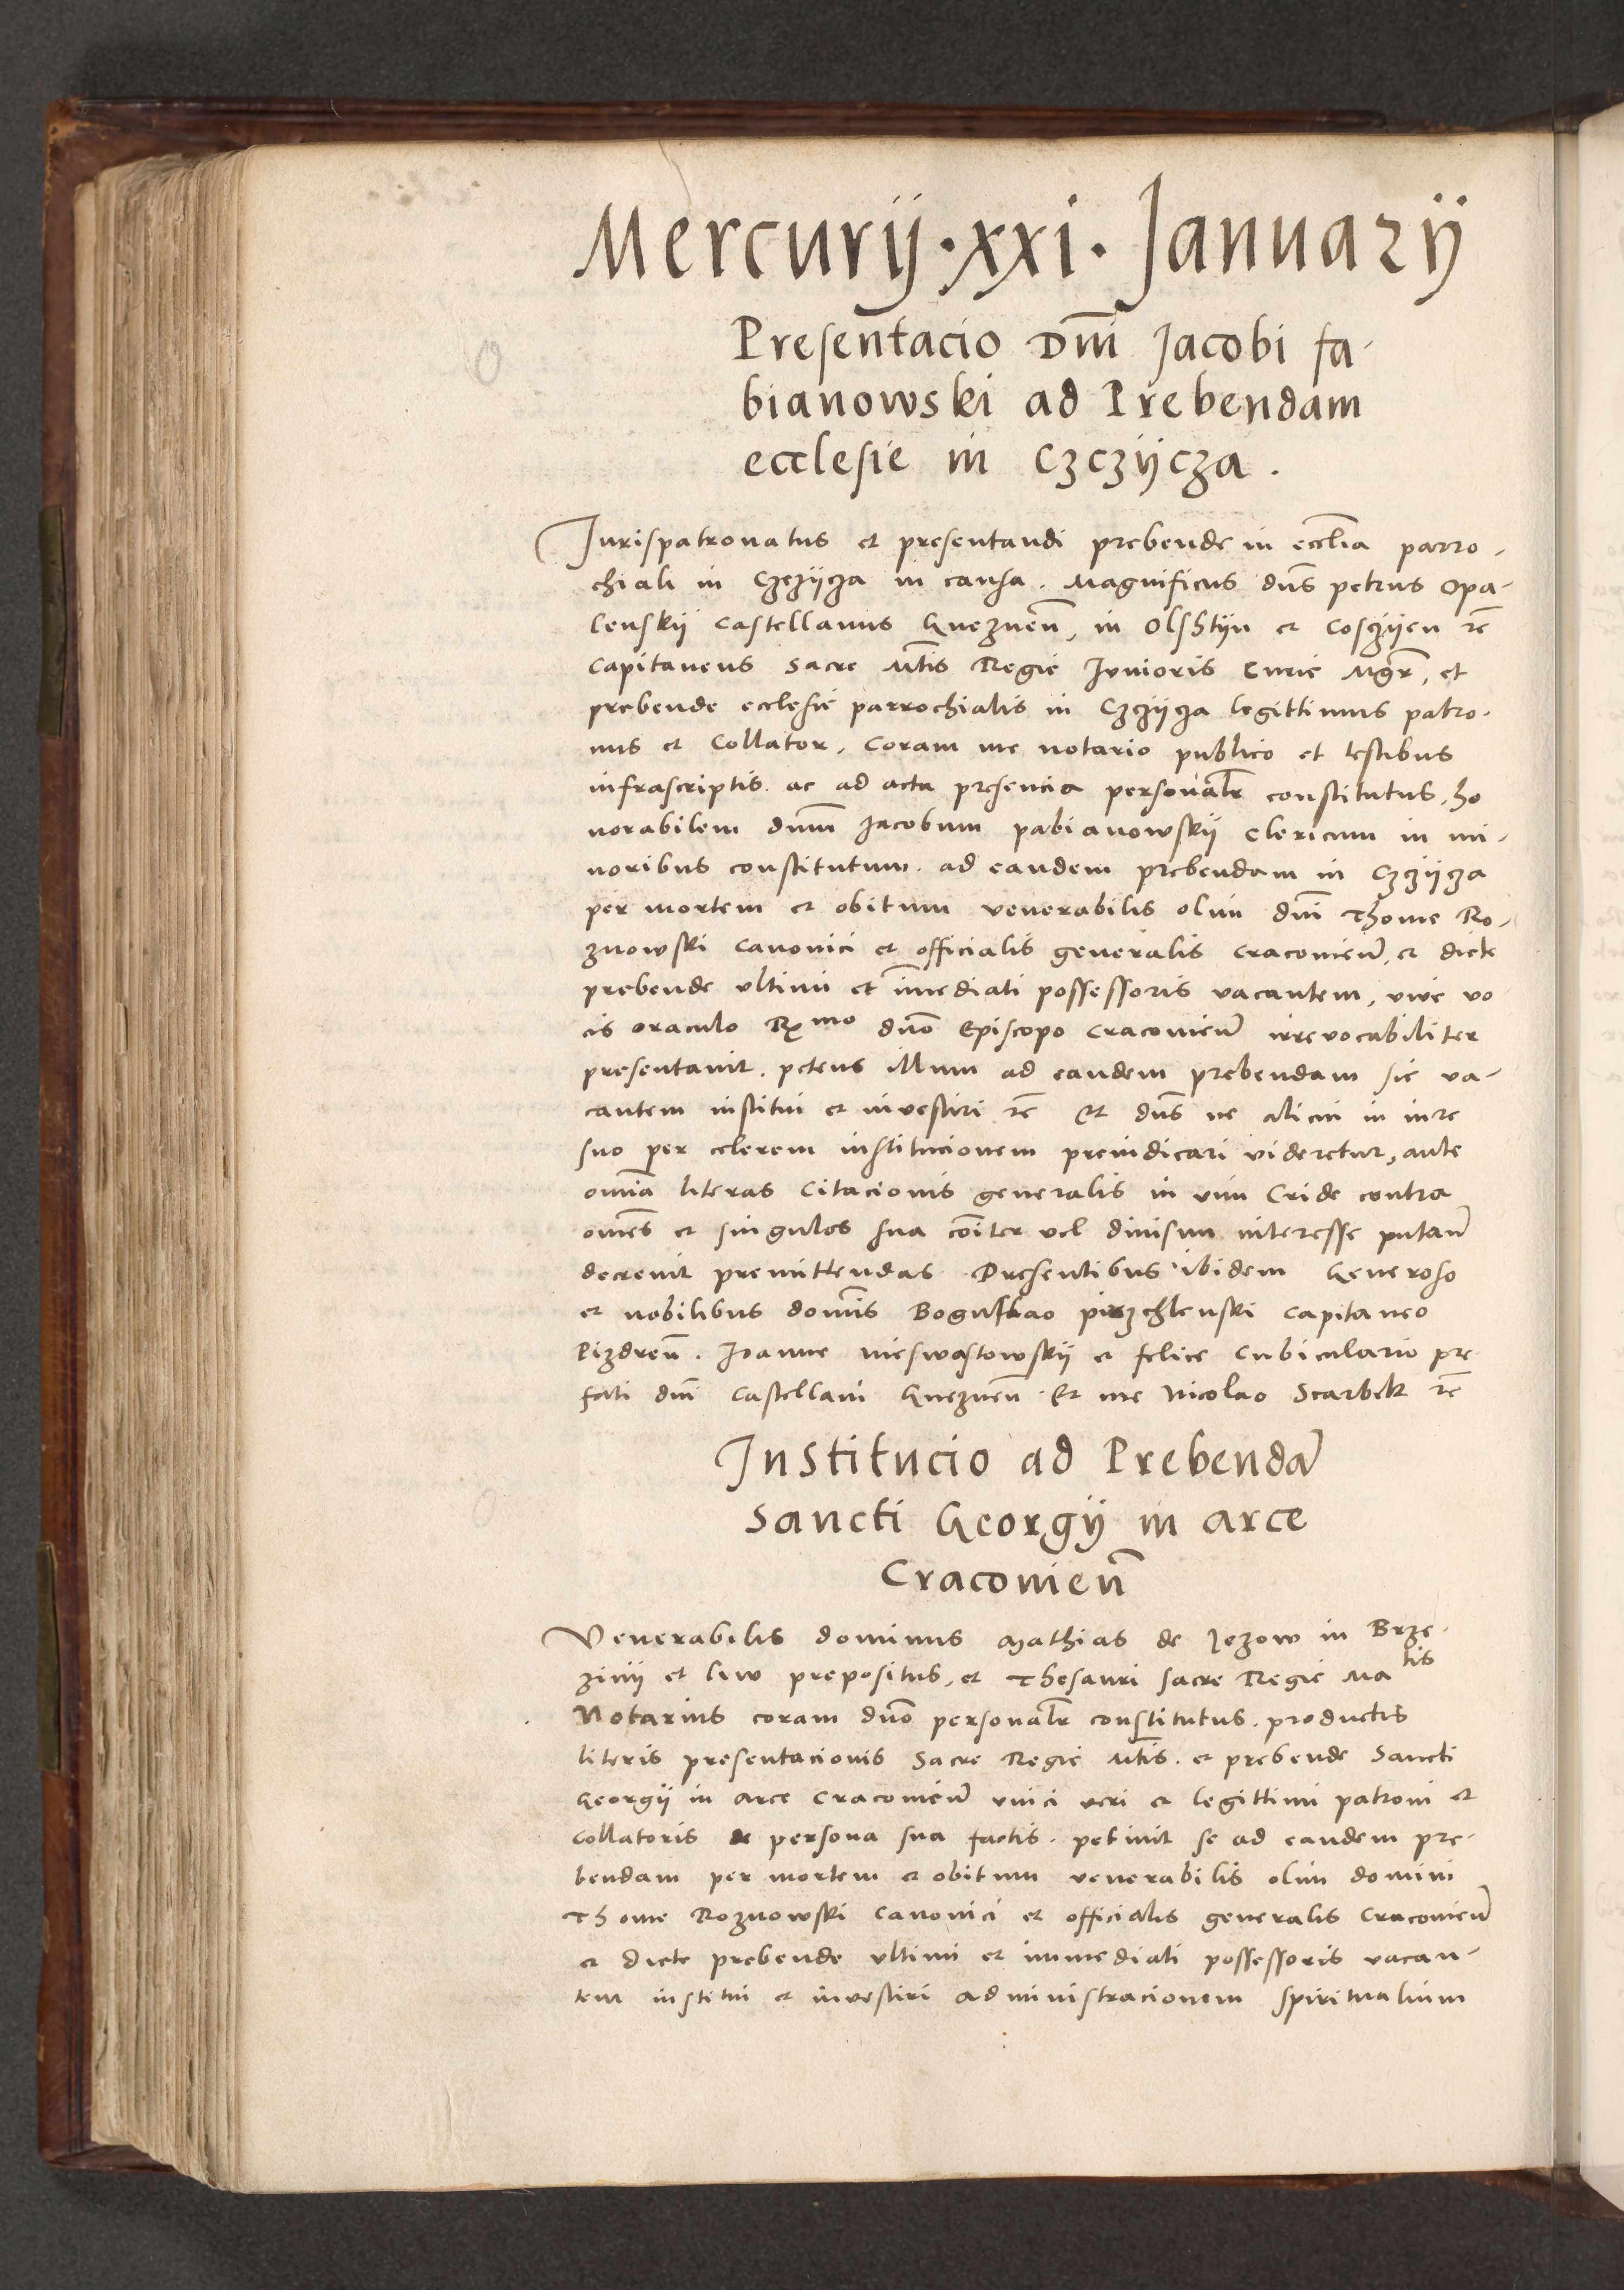 Mercurij · xxi · Januarij
Presentacio Dni Jacobi fa-
bianowski ad Prebendam
ecclesie in Czczijcza .
Jurispatronatus et presentandi prebende in ecclia parro-
chiali in Czczijcza in causa . Magnificus dns petrus Opa-
lenskij Castellanus Gneznen, in Olshtijn et Cosczijen rc
Capitaneus Sacre Mtis Regie Junioris Curie Mgr, et
prebende ecclesie parrochialis in Czczijcza legittimus patro-
nus et Collator, Coram me notario publico et testibus
infrascriptis ac ad acta presencia personalr constitutus, ho
norabilem dnm Jacobum pabianowskij Clericum in mi-
noribus constitutum ad eandem prebendam in Czczijcza
per mortem et obitum venerabilis olim dni Thome Ro-
znowski Canonici et officialis generalis Cracouien, et dicte
prebende ultimi et imediati possessoris vacantem, vive vo
cis oraculo Rmo dno Episcopo Cracouien irrevocabiliter
presentavit . petens illum ad eandem prebendam sic va-
cantem institui et investiri rc Et dns ne alicui in iure
suo per celerem institucionem preiudicari videretur, ante
omnia literas Citacionis generalis in vim Cride contra
omnes et singulos sua coiter vel divisim interesse putan
decrevit premittendas . Presentibus ibidem Generoso
et nobilibus domnis Boguslao Capitaneo
Pizdren . Joanne nieswastowskij et felice Cubiculario pre
fati dni Castellani Gneznen . Et me Nicolao Scarbek rc
Institucio ad Prebendam
Sancti Georgij in arce
Cracouien
Venerabilis dominus Mathias de Jezow in Brze-
zinij et liw prepositus, et Thesauri sacre Regie Matis
Notarius coram dno personalr constitutus . productis
literis presentacionis Sacre Regie Mtis . et prebende Sancti
Georgij in arce Cracouien unici veri et legittimi patroni et
Collatoris de persona sua factis . petivit se ad eandem pre-
bendam per mortem et obitum venerabilis olim domini
Thome Roznowski Canonici et officialis generalis Cracouien
et dicte prebende ultimi et immediati possessoris vacan-
tem institui et investiri administracionem spiritualium